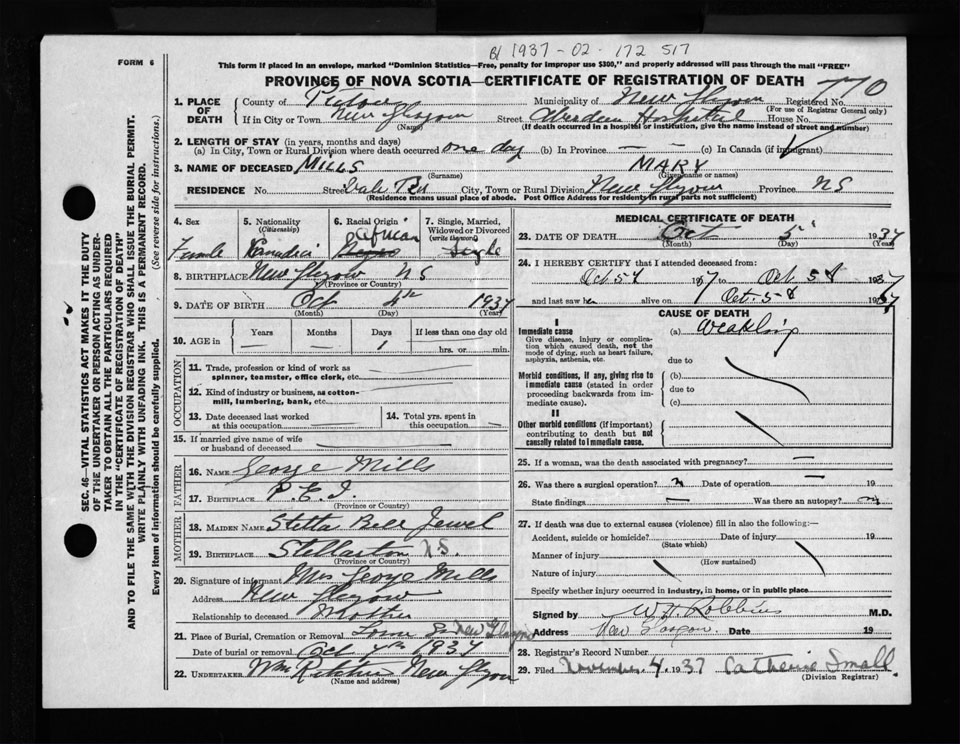 1937-02-172 517
FORM 6
This form if placed in an envelope, marked "Dominion Statistics—Free, penalty for improper use $300," and properly addressed will pass through the mail "FREE"
PROVINCE OF NOVA SCOTIA—CERTIFICATE OF REGISTRATION OF DEATH
770
1. PLACE OF DEATH
County of Pictou Municipality of New Glasgow Registered No.
(For use of Registrar General only)
If in City or Town New Glasgow Street Aberdeen Hospital House No.
(Name) (If death occurred in a hospital or institution, give the name instead of street and number)
2. LENGTH OF STAY (in years, months and days)
(a) In City, Town or Rural Division where death occurred one day (b) In Province — — (c) In Canada (if immigrant)
3. NAME OF DECEASED MILLS MARY
(Surname) (Given name or names)
RESIDENCE No. Street Dale City, Town or Rural Division New Glasgow Province NS
(Residence means usual place of abode. Post Office Address for residents in rural parts not sufficient)
4. Sex 5. Nationality (Citizenship) 6. Racial Origin 7. Single, Married, Widowed or Divorced (write the word)
African
Female Canadian Negro Single
8. BIRTHPLACE New Glasgow NS
(Province or Country)
9. DATE OF BIRTH Oct 4th 1937
(Month) (Day) (Year)
10. AGE in Years Months Days If less than one day old
— — 1 hrs. or min.
OCCUPATION
11. Trade, profession or kind of work as spinner, teamster, office clerk, etc.
12. Kind of industry or business, as cotton-mill, lumbering, bank, etc.
13. Date deceased last worked at this occupation
14. Total yrs. spent in this occupation
15. If married give name of wife or husband of deceased
FATHER
16. NAME George Mills
17. BIRTHPLACE P.E.I.
(Province or Country)
MOTHER
18. MAIDEN NAME Stella Bell Jewel
19. BIRTHPLACE Stellarton N.S.
(Province or Country)
20. Signature of informant Mrs George Mills
Address New Glasgow
Relationship to deceased Mother
21. Place of Burial, Cremation or Removal New Glasgow
Date of burial or removal Oct 1937
22. UNDERTAKER Wm New Glasgow
(Name and address)
MEDICAL CERTIFICATE OF DEATH
23. DATE OF DEATH Oct 5 1937
(Month) (Day) (Year)
24. I HEREBY CERTIFY that I attended deceased from:
Oct 5th 1937 to Oct 5th 1937
and last saw her alive on Oct. 5th 1937
CAUSE OF DEATH
I
Immediate cause (a) Weakling
Give disease, injury or complication which caused death, not the mode of dying, such as heart failure, asphyxia, asthenia, etc.
due to
Morbid conditions, if any, giving rise to immediate cause (stated in order proceeding backwards from immediate cause).
(b)
due to
(c)
II
Other morbid conditions (if important) contributing to death but not causally related to immediate cause.
25. If a woman, was the death associated with pregnancy? —
26. Was there a surgical operation? n Date of operation — 19
State findings — Was there an autopsy? no
27. If death was due to external causes (violence) fill in also the following:—
Accident, suicide or homicide? Date of injury 19
(State which)
Manner of injury
(How sustained)
Nature of injury
Specify whether injury occurred in industry, in home, or in public place
Signed by W.H. Robbins M.D.
Address New Glasgow Date 19
28. Registrar's Record Number
29. Filed November 4. 1937 Catherine Small
(Division Registrar)
SEC. 46—VITAL STATISTICS ACT MAKES IT THE DUTY
OF THE UNDERTAKER OR PERSON ACTING AS UNDER-
TAKER TO OBTAIN ALL THE PARTICULARS REQUIRED
IN THE "CERTIFICATE OF REGISTRATION OF DEATH"
AND TO FILE THE SAME WITH THE DIVISION REGISTRAR WHO SHALL ISSUE THE BURIAL PERMIT.
WRITE PLAINLY WITH UNFADING INK. THIS IS A PERMANENT RECORD.
Every item of information should be carefully supplied. (See reverse side for instructions.)